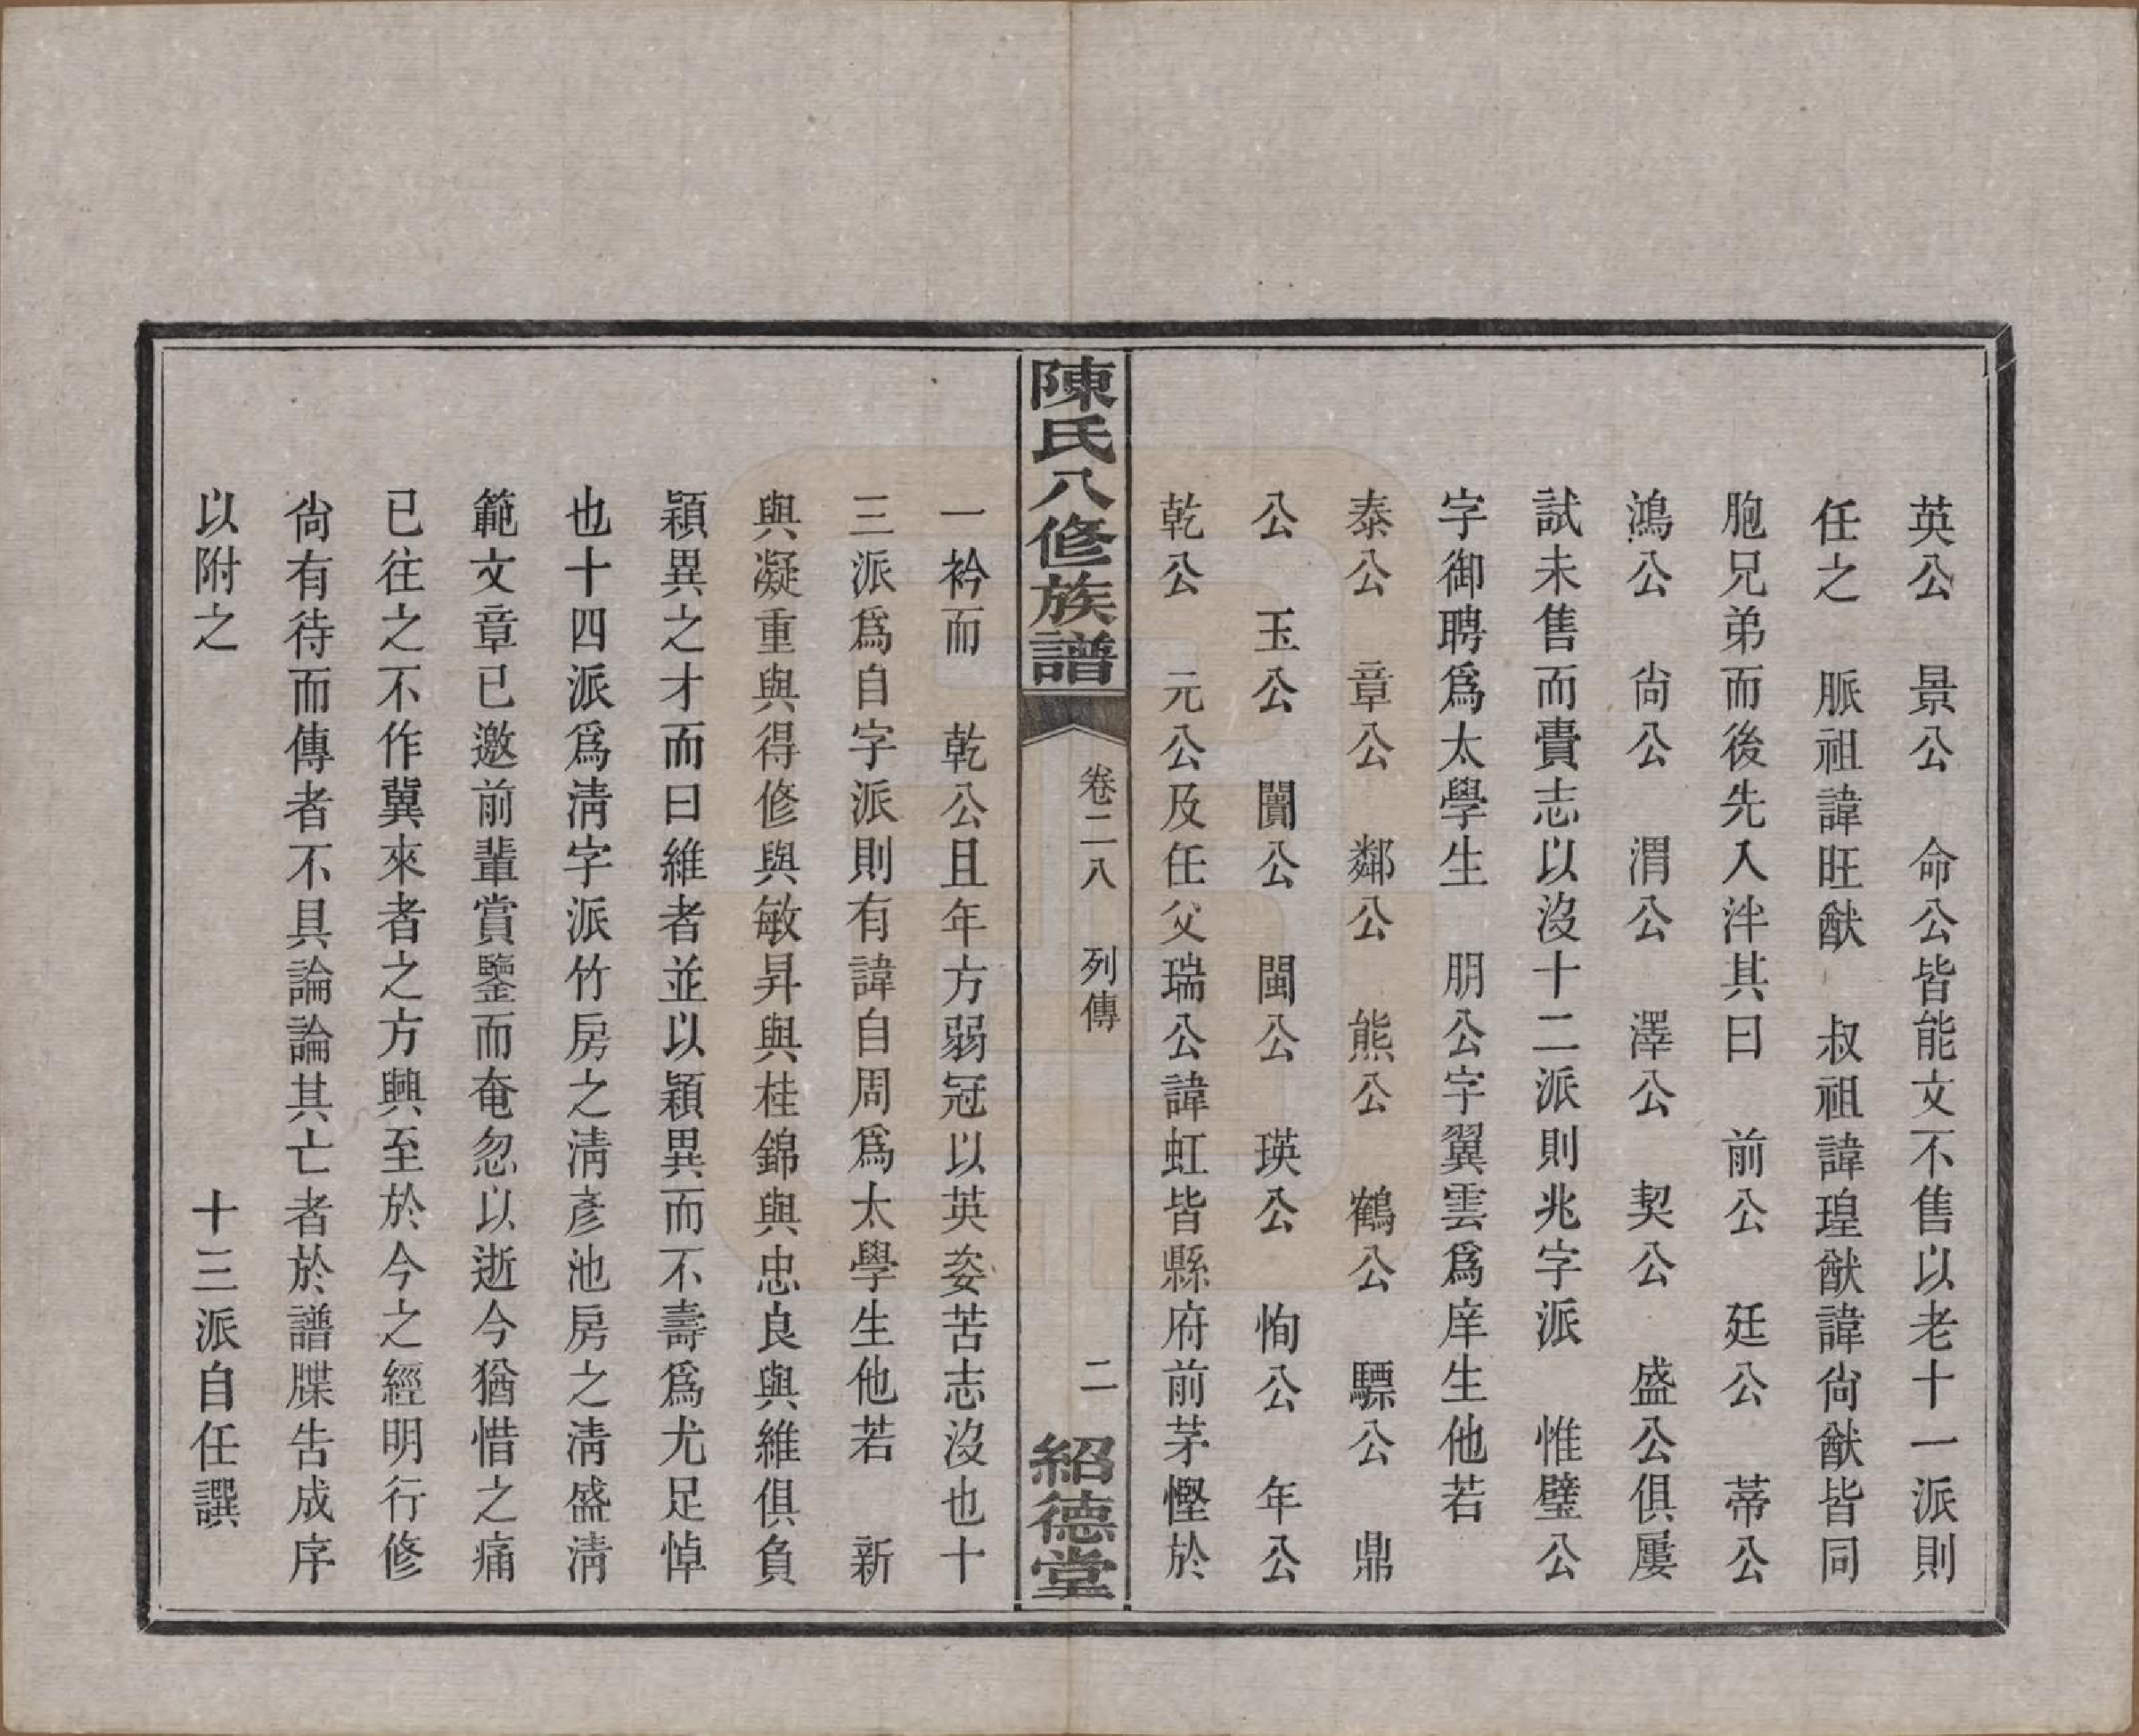 英公　景公　命公皆能文不售以老十一派則
任之　脈祖諱旺猷　叔祖諱瑝猷諱尙猷皆同
胞兄弟而後先入泮其曰　前公　廷公　蒂公
鴻公　尙公　渭公　澤公　契公　盛公俱屢
試未售而賫志以沒十二派則兆字派　惟璧公
字御聘爲太學生　朋公字翼雲爲庠生他若
泰公　章公　鄰公　熊公　鶴公　驃公　鼎
公　玉公　闠公　閩公　瑛公　恂公　年公
乾公　元公及任父瑞公諱虹皆縣府前茅慳於
陳氏八修族譜　卷二八　列傳　二　紹德堂
一衿而　乾公且年方弱冠以英姿苦志沒也十
三派爲自字派則有諱自周爲太學生他若　新
與凝重與得修與敏昇與桂錦與忠良與維俱負
穎異之才而曰維者並以穎異而不壽爲尤足悼
也十四派爲淸字派竹房之淸彥池房之淸盛淸
範文章已邀前輩賞鑒而奄忽以逝今猶惜之痛
已往之不作冀來者之方興至於今之經明行修
尙有待而傳者不具論論其亡者於譜牒告成序
以附之　　　　　　　　　十三派自任譔